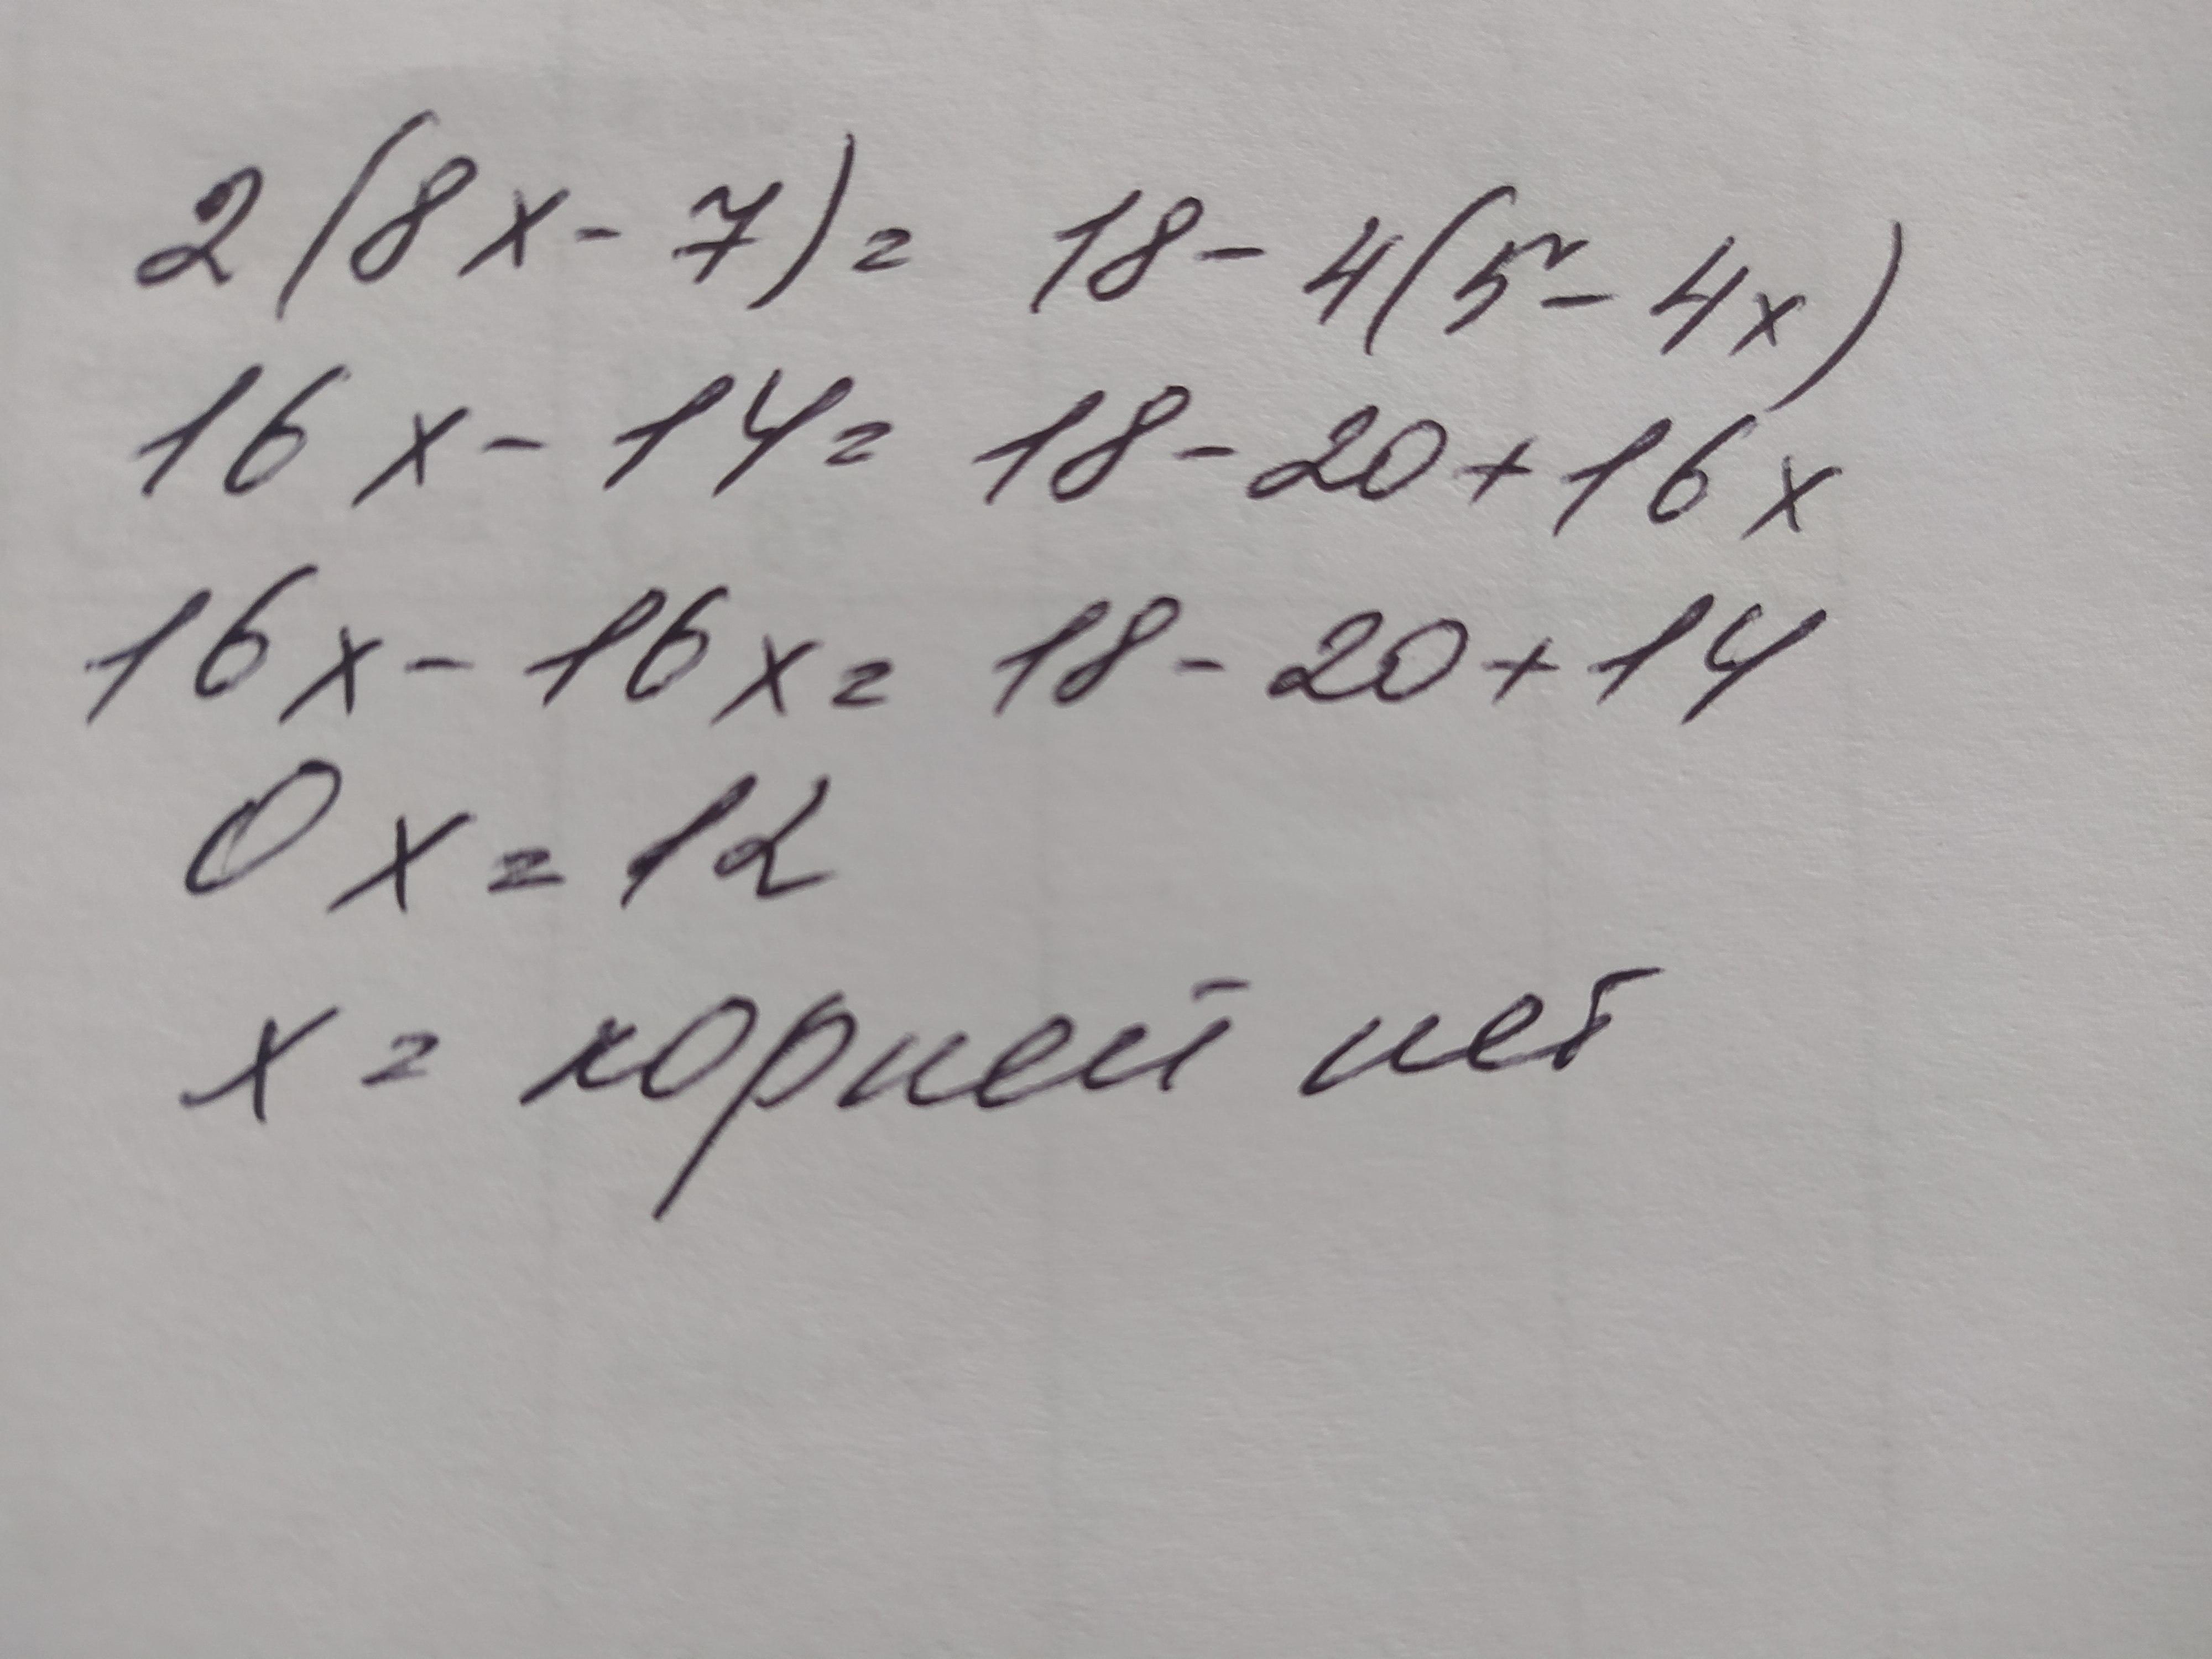 2(8x-7)= 18-4(5-4x)
16x-14= 18-20+16x
16x-16x= 18-20+14
0x=12
x= корней нет